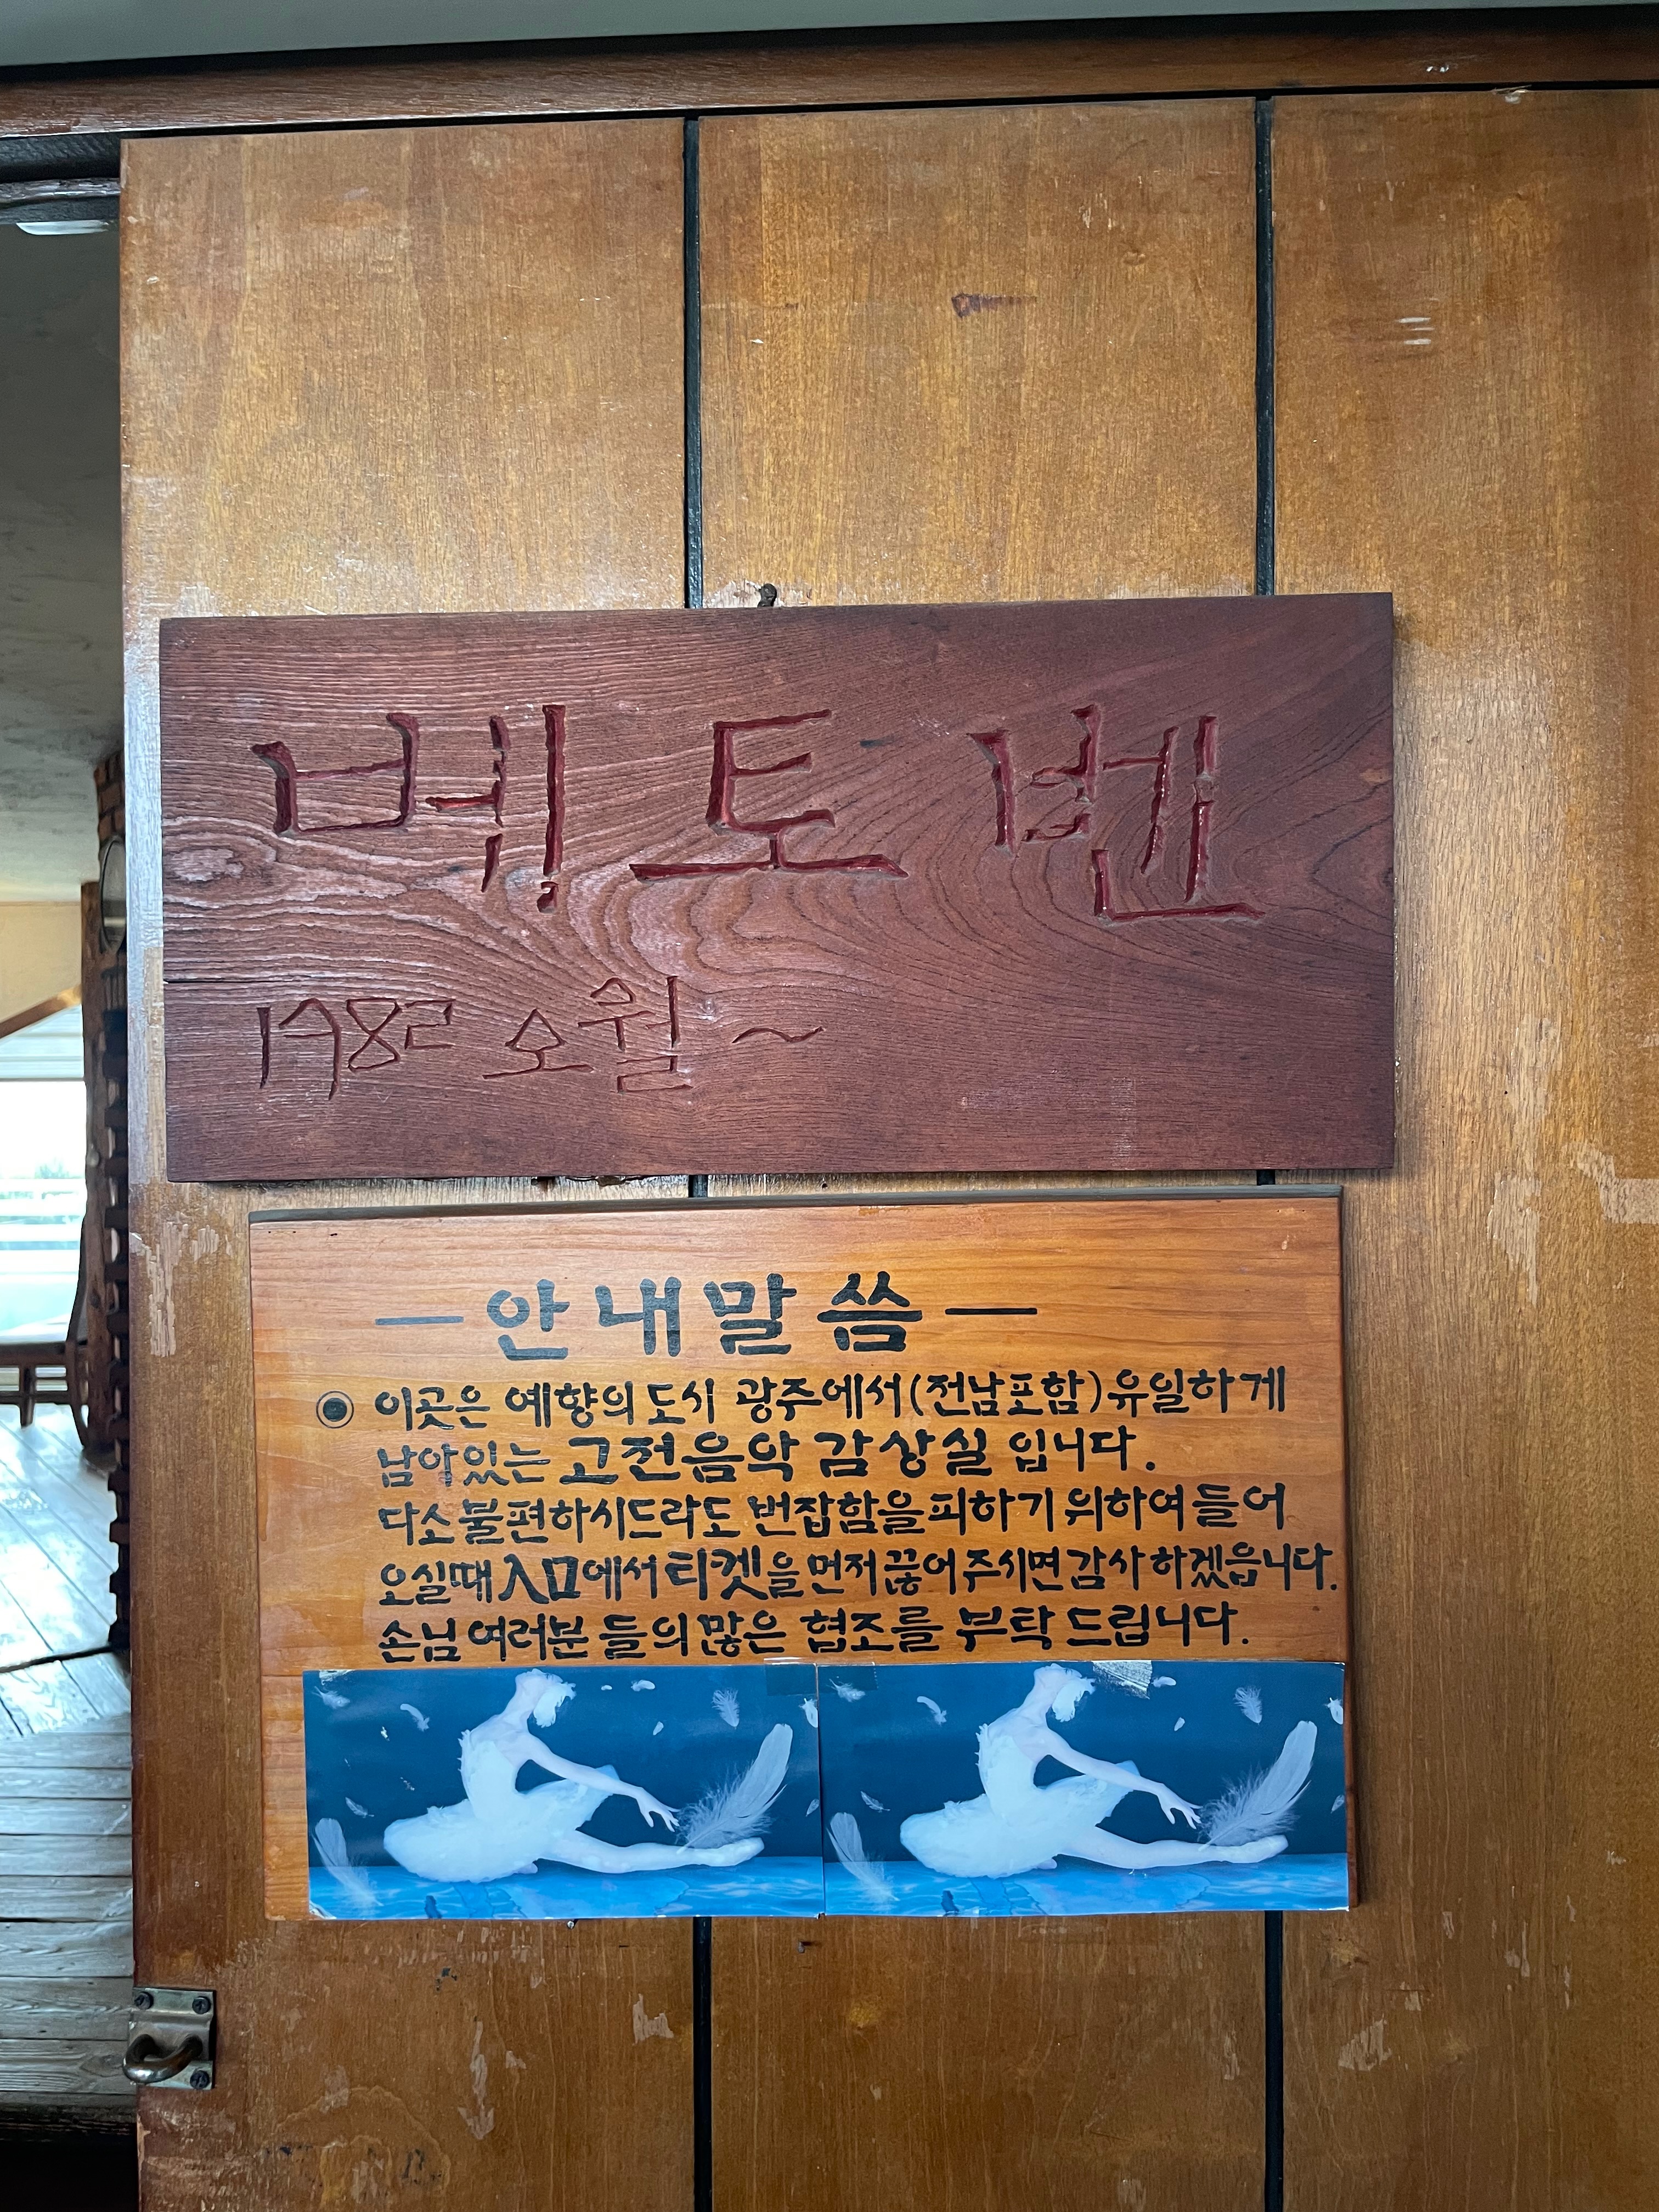 베토벤
1982 오월 ~
— 안내말씀 —
◉ 이곳은 예향의 도시 광주에서(전남포함)유일하게
남아있는 고전음악 감상실 입니다.
다소 불편하시드라도 번잡함을 피하기 위하여 들어
오실때 入口에서 티켓을 먼저 끊어 주시면 감사 하겠읍니다.
손님 여러분 들의 많은 협조를 부탁 드립니다.